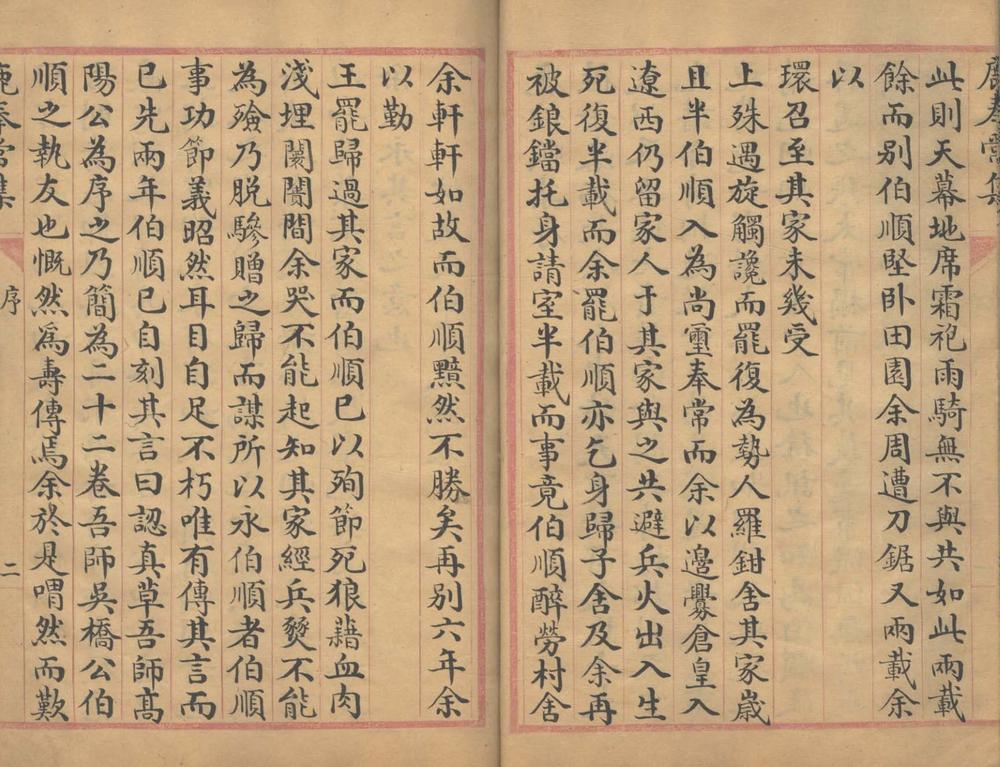 此則天幕地席霜袍雨騎無不與共如此兩載
餘而別伯順堅卧田園余周遭刀鋸又兩載余
以
環召至其家未幾受
上殊遇旋觸讒而罷復為勢人羅鉗舍其家嵗
且半伯順入為尚璽奉常而余以邊釁倉皇入
遼西仍留家人于其家與之共避兵火出入生
死復半載而余罷伯順亦乞身歸子舍及余再
被鋃鐺托身請室半載而事竟伯順醉勞村舍
余軒軒如故而伯順黯然不勝矣再別六年余
以勤
王罷歸過其家而伯順已以殉節死狼藉血肉
淺埋闤闠間余哭不能起知其家經兵燹不能
為殮乃脫驂贈之歸而謀所以永伯順者伯順
事功節義昭然耳目自足不朽唯有傳其言而
已先兩年伯順已自刻其言曰認真草吾師高
陽公為序之乃簡為二十二卷吾師吳橋公伯
順之執友也慨然為壽傳焉余於是喟然而歎
鹿奉常集
序
二